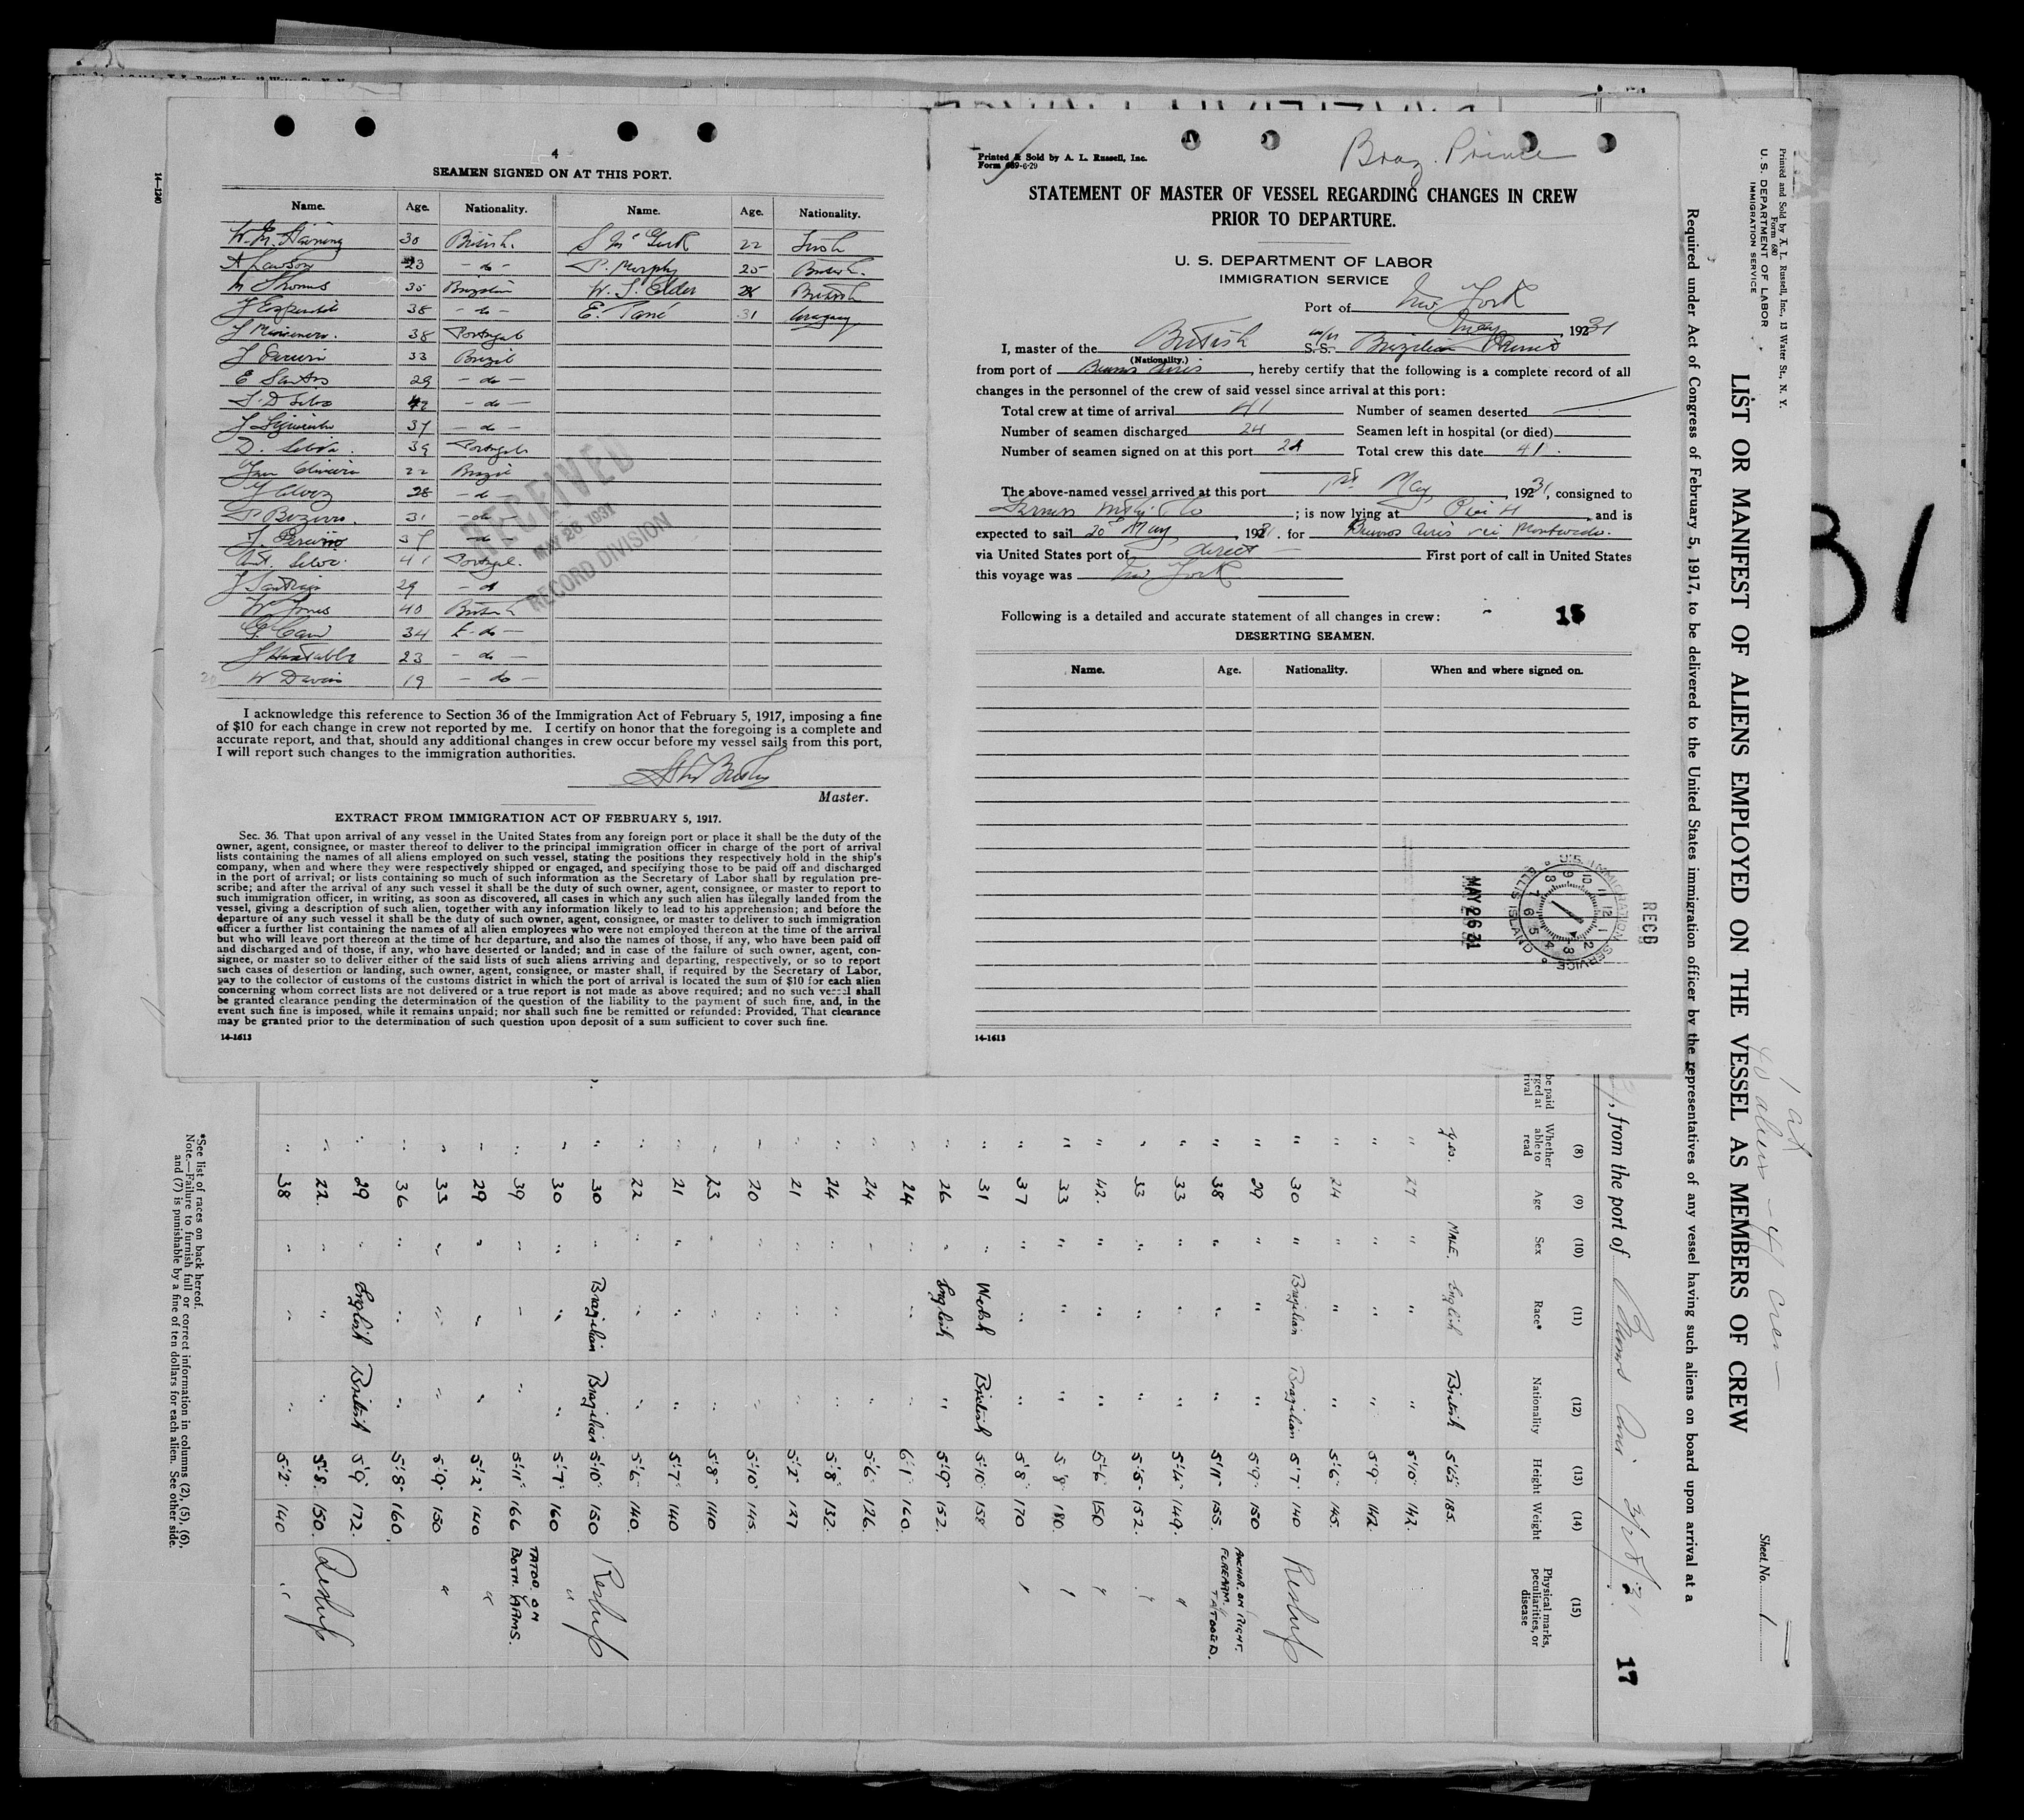 4
SEAMEN SIGNED ON AT THIS PORT.
Name. Age. Nationality. Name. Age. Nationality.
30 British. 22 Irish
A Lawson 23 - do - P. Murphy 25 British.
M Thomas 35 W. J. Elder British
38 - do - E. 31 Uruguay
38 Portugal
33 Brazil
E Santos 29 - do -
- do -
37 - do -
D. Silva. 39 Portugal
22 Brazil
28 - do -
P Bezerra. 31 - do -
37 do
Ant. Silva. 41 Portugal.
J Santiago 29 - do
W Jones 40 British
34 - do -
J Huxtable 23 - do -
20 W Davis 19 - do -
RECEIVED
MAY 26 1931
RECORD DIVISION
I acknowledge this reference to Section 36 of the Immigration Act of February 5, 1917, imposing a fine
of $10 for each change in crew not reported by me. I certify on honor that the foregoing is a complete and
accurate report, and that, should any additional changes in crew occur before my vessel sails from this port,
I will report such changes to the immigration authorities.
Master.
EXTRACT FROM IMMIGRATION ACT OF FEBRUARY 5, 1917.
Sec. 36. That upon arrival of any vessel in the United States from any foreign port or place it shall be the duty of the
owner, agent, consignee, or master thereof to deliver to the principal immigration officer in charge of the port of arrival
lists containing the names of all aliens employed on such vessel, stating the positions they respectively hold in the ship's
company, when and where they were respectively shipped or engaged, and specifying those to be paid off and discharged
in the port of arrival; or lists containing so much of such information as the Secretary of Labor shall by regulation pre-
scribe; and after the arrival of any such vessel it shall be the duty of such owner, agent, consignee, or master to report to
such immigration officer, in writing, as soon as discovered, all cases in which any such alien has illegally landed from the
vessel, giving a description of such alien, together with any information likely to lead to his apprehension; and before the
departure of any such vessel it shall be the duty of such owner, agent, consignee, or master to deliver to such immigration
officer a further list containing the names of all alien employees who were not employed thereon at the time of the arrival
but who will leave port thereon at the time of her departure, and also the names of those, if any, who have been paid off
and discharged and of those, if any, who have deserted or landed; and in case of the failure of such owner, agent, con-
signee, or master so to deliver either of the said lists of such aliens arriving and departing, respectively, or so to report
such cases of desertion or landing, such owner, agent, consignee, or master shall, if required by the Secretary of Labor,
pay to the collector of customs of the customs district in which the port of arrival is located the sum of $10 for each alien
concerning whom correct lists are not delivered or a true report is not made as above required; and no such vessel shall
be granted clearance pending the determination of the question of the liability to the payment of such fine, and, in the
event such fine is imposed, while it remains unpaid; nor shall such fine be remitted or refunded: Provided, That clearance
may be granted prior to the determination of such question upon deposit of a sum sufficient to cover such fine.
14-1613
14-1240
Printed & Sold by A. L. Russell, Inc.
Form 689-6-29
Braz. Prince
STATEMENT OF MASTER OF VESSEL REGARDING CHANGES IN CREW
PRIOR TO DEPARTURE.
U. S. DEPARTMENT OF LABOR
IMMIGRATION SERVICE
Port of New York
May, 1931
I, master of the British S.S. Brazilian Prince
(Nationality.)
from port of Buenos Aires, hereby certify that the following is a complete record of all
changes in the personnel of the crew of said vessel since arrival at this port:
Total crew at time of arrival 41 Number of seamen deserted
Number of seamen discharged 24 Seamen left in hospital (or died)
Number of seamen signed on at this port 24 Total crew this date 41.
The above-named vessel arrived at this port 1st May, 1931, consigned to
Furness Withy & Co; is now lying at Pier 4, and is
expected to sail May, 1931. for Buenos Aires via Montevideo.
via United States port of direct First port of call in United States
this voyage was New York
Following is a detailed and accurate statement of all changes in crew: 15
DESERTING SEAMEN.
Name. Age. Nationality. When and where signed on.
RECD
U.S. IMMIGRATION SERVICE
ELLIS ISLAND
MAY 26 31
14-1613
31
Printed and Sold by A. L. Russell, Inc., 13 Water St., N. Y.
Form 680
U. S. DEPARTMENT OF LABOR
IMMIGRATION SERVICE
Sheet No. 1
LIST OR MANIFEST OF ALIENS EMPLOYED ON THE VESSEL AS MEMBERS OF CREW
Required under Act of Congress of February 5, 1917, to be delivered to the United States immigration officer by the representatives of any vessel having such aliens on board upon arrival at a
, from the port of Buenos Aires
17
(8) (9) (10) (11) (12) (13) (14) (15)
Whether able to read Age Sex Race* Nationality Height Weight Physical marks, peculiarities, or disease
yes. MALE. English British 5'6½ 185.
" 27 " " " 5'10" 142.
" " " " 5'9" 142.
" 24 " " " 5'6" 145.
" 30 " Brazilian Brazilian 5'7" 140 Reship
" 29 " " " 5'9" 150 ANCHOR. ON RIGHT.
" 38 " " " 5'11" 155. FOREARM. TATOOED.
" 33 " " " 5'4" 149. "
" 33 " " " 5'5" 152. "
" 42. " " " 5'6" 150 "
" 33 " " " 5'8" 180. "
" 37 " " " 5'8" 170 "
" 31 " Welsh British 5'10" 158
" 26 " English " 5'9" 152.
" 24 " " " 6'1" 160.
" 24 " " " 5'6" 126.
" 24 " " " 5'8" 132.
" 21 " " " 5'2" 127
" 20 " " " 5'10" 145.
" 23 " " " 5'8" 140
" 21 " " " 5'7" 140
" 22 " " " 5'6" 140.
" 30 " Brazilian Brazilian 5'10" 150 Reship
" 30 " " " 5'7" 160 "
" 39 " " " 5'11" 166 TATOO. ON BOTH. ARMS.
" 29 " " " 5'2" 140 "
" 33 " " " 5'9" 150 "
" 36 " " " 5'8" 160.
" 29 " English British 5'9" 172.
" 22. " " " 5'8" 150. Reship
" 38 " " " 5'2" 140 "
*See list of races on back hereof.
Note.—Failure to furnish full or correct information in columns (2), (5), (6),
and (7) is punishable by a fine of ten dollars for each alien. See other side.